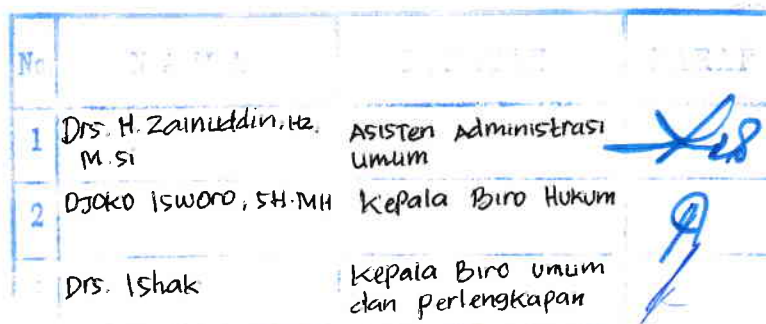 No
1 Drs. H. Zainuddin, Hz. Asisten Administrasi
M.Si Umum
2 Djoko Isworo, SH.MH Kepala Biro Hukum
Drs. Ishak Kepala Biro umum
dan perlengkapan